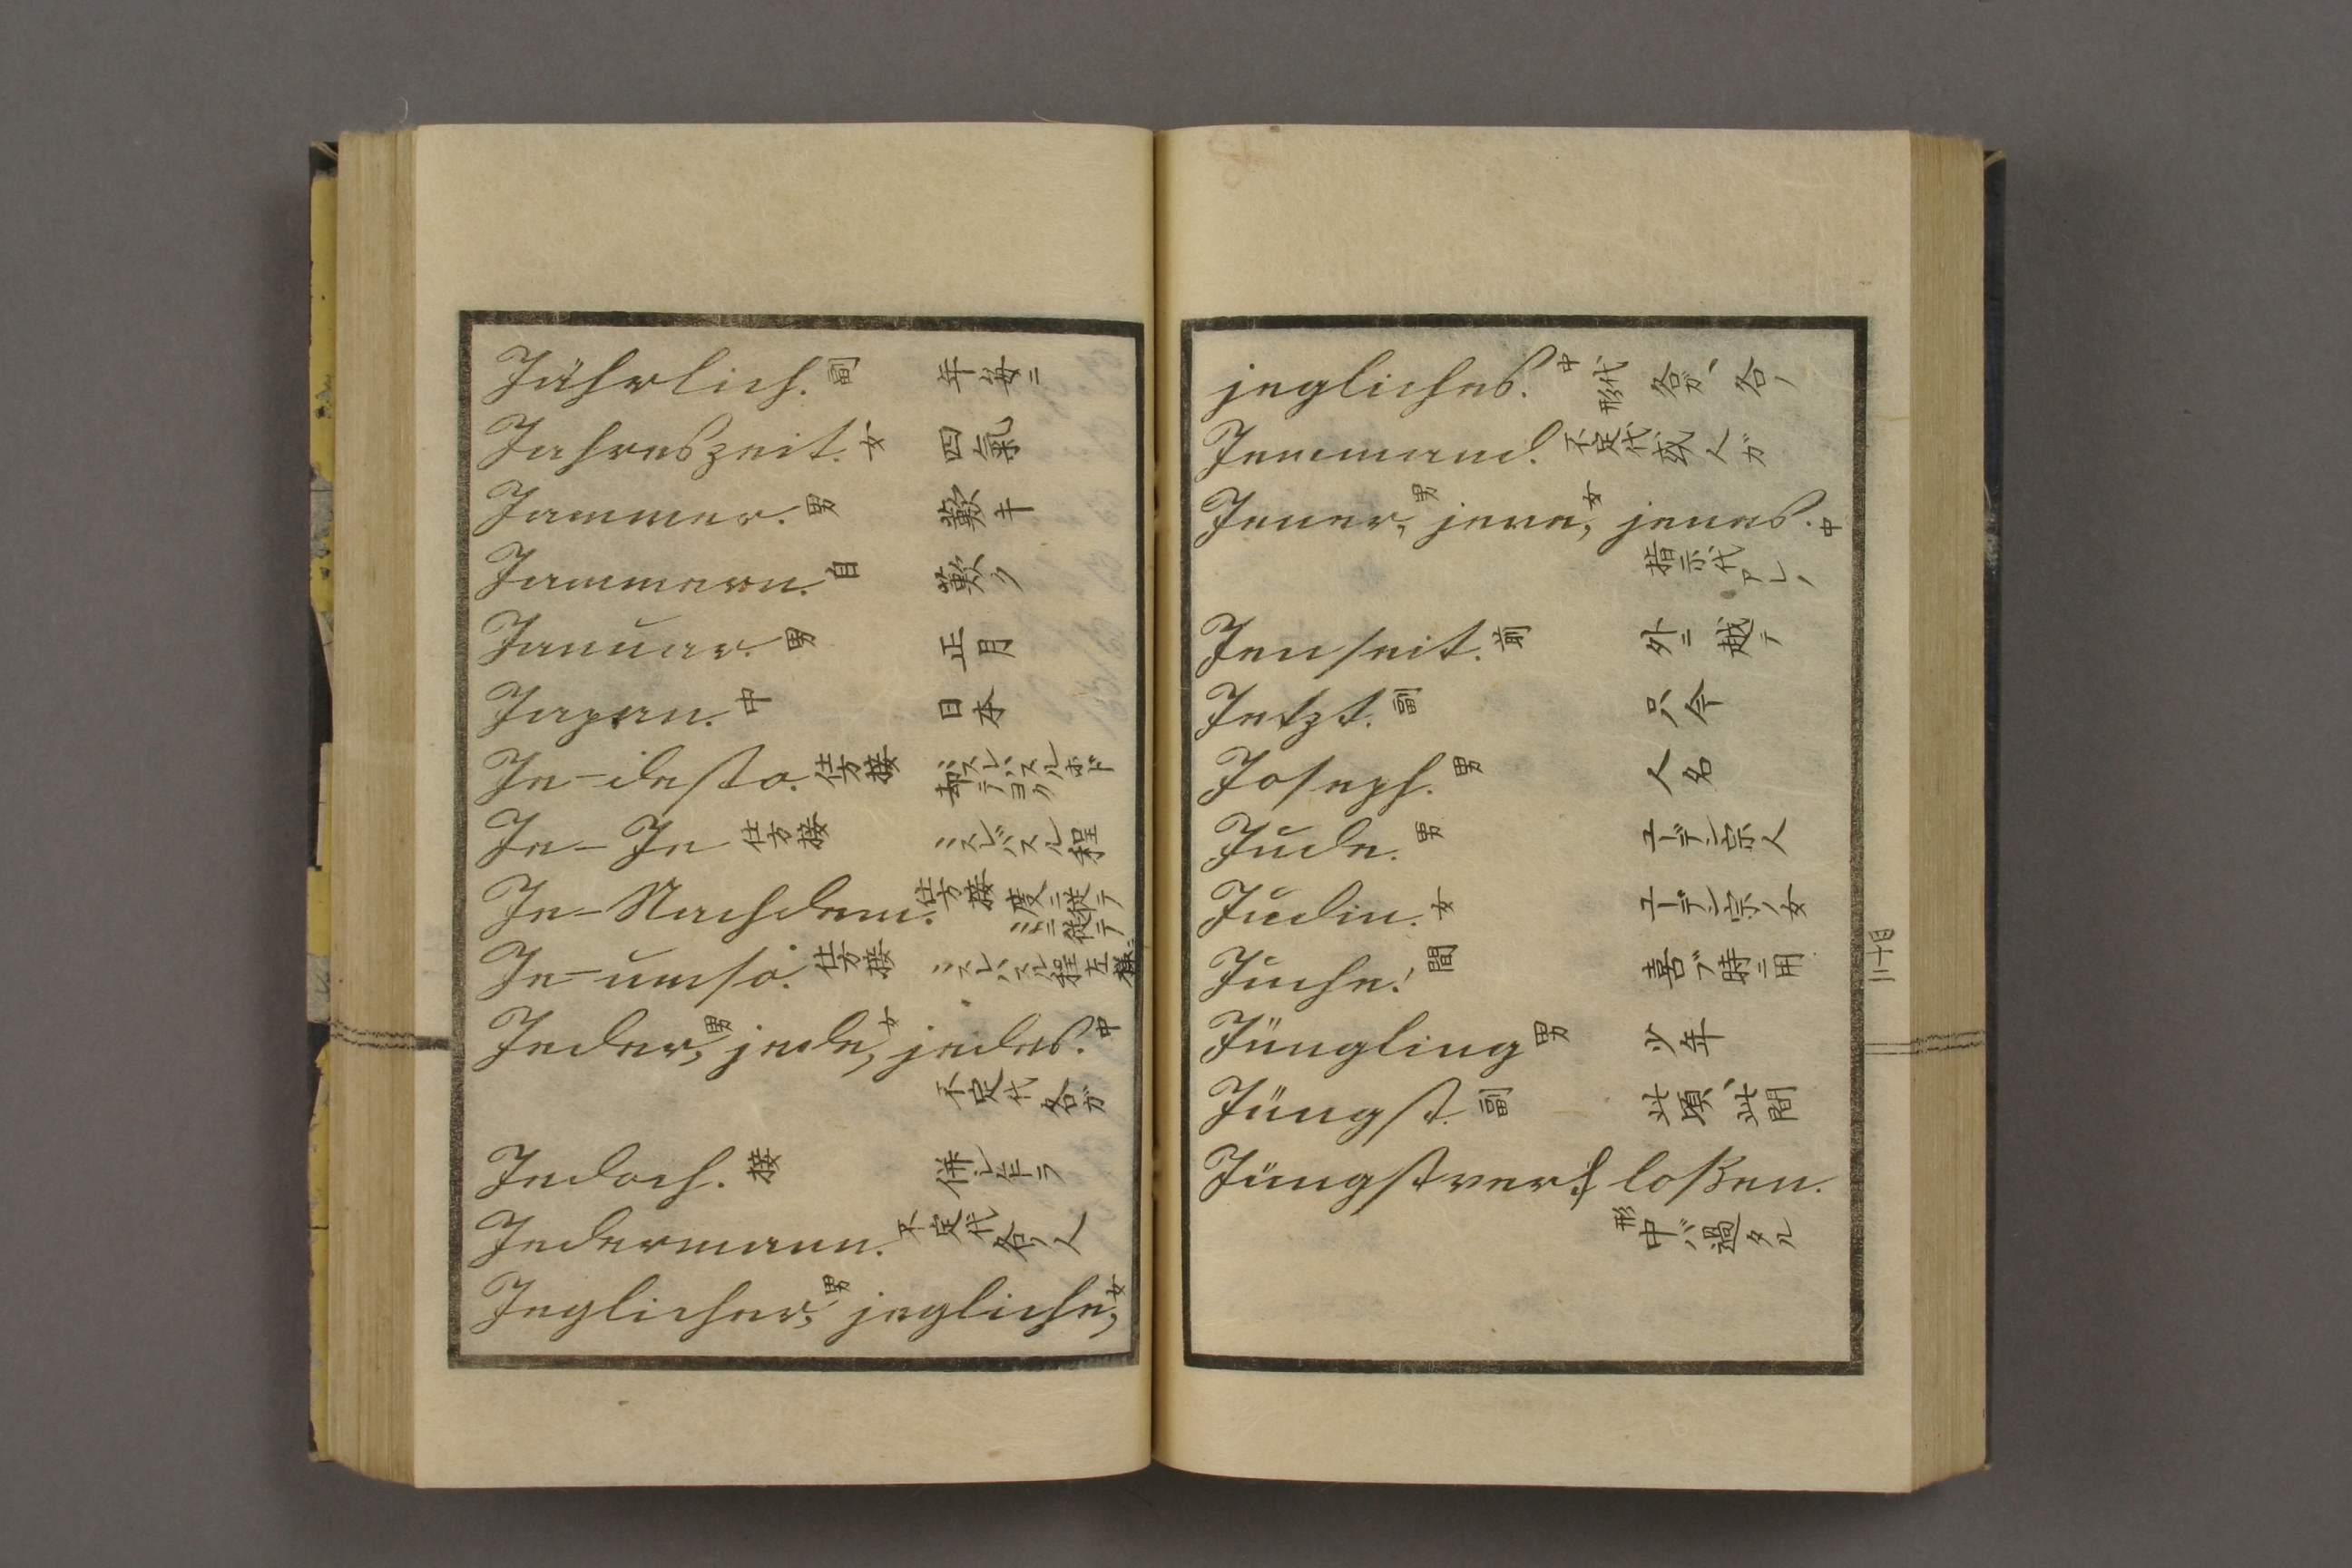 Jährlich. 副 年毎ニ
Jahreszeit. 女 四氣
Jammer. 男 歎キ
Jammern. 自 歎ク
Januar. 男 正月
Japan. 中 日本
Je-desto. 仕方接 バスレバスルホド却テヨク
Je-Je 仕方接 ミスレバスル程
Je-Nachdem. 仕方接 度ニ従テミニ従テ
Je-umso. 仕方接 ミスレバスル程左様ニ
Jeder, 男 jede, 女 jedes. 中
不定代 各ガ
Jedoch. 接 併シ乍ラ
Jedermann. 不定代 各ノ人
Jeglicher, 男 jegliche, 女
jegliches. 中 形代 各ガ、各ノ
Jemmand. 不定代 或人ガ
Jener, 男 jene, 女 jenes. 中
指示代 アレノ
Jenseit. 前 外ニ 越テ
Jetzt. 副 只今
Joseph. 男 人名
Jude. 男 ユーデン宗人
Judin. 女 ユーデン宗ノ女
Juche! 間 喜ブ時ニ用
Jüngling 男 少年
Jüngst. 副 此頃、此間
Jüngstverfloßen.
形中バ過タル